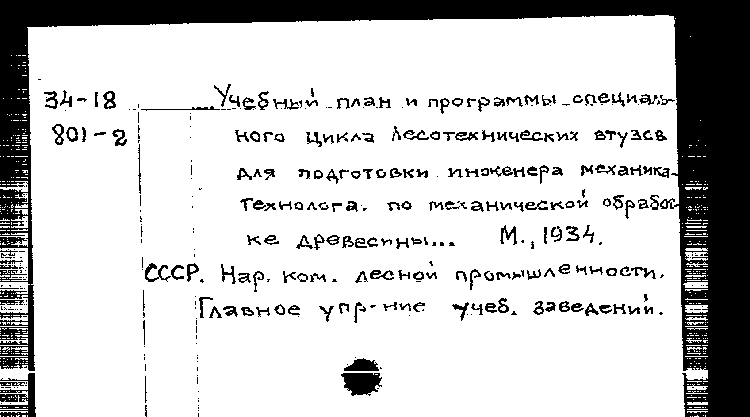 34-18 ....Учебный план и программы специаль-
801-2 ного цикла лесотехнических втузов
для подготовки инженера механика-
технолога. по механической обработ-
ке древесины... М., 1934.
СССР. Нар. ком. лесной промышленности.
Главное упр-ние учеб. заведений.